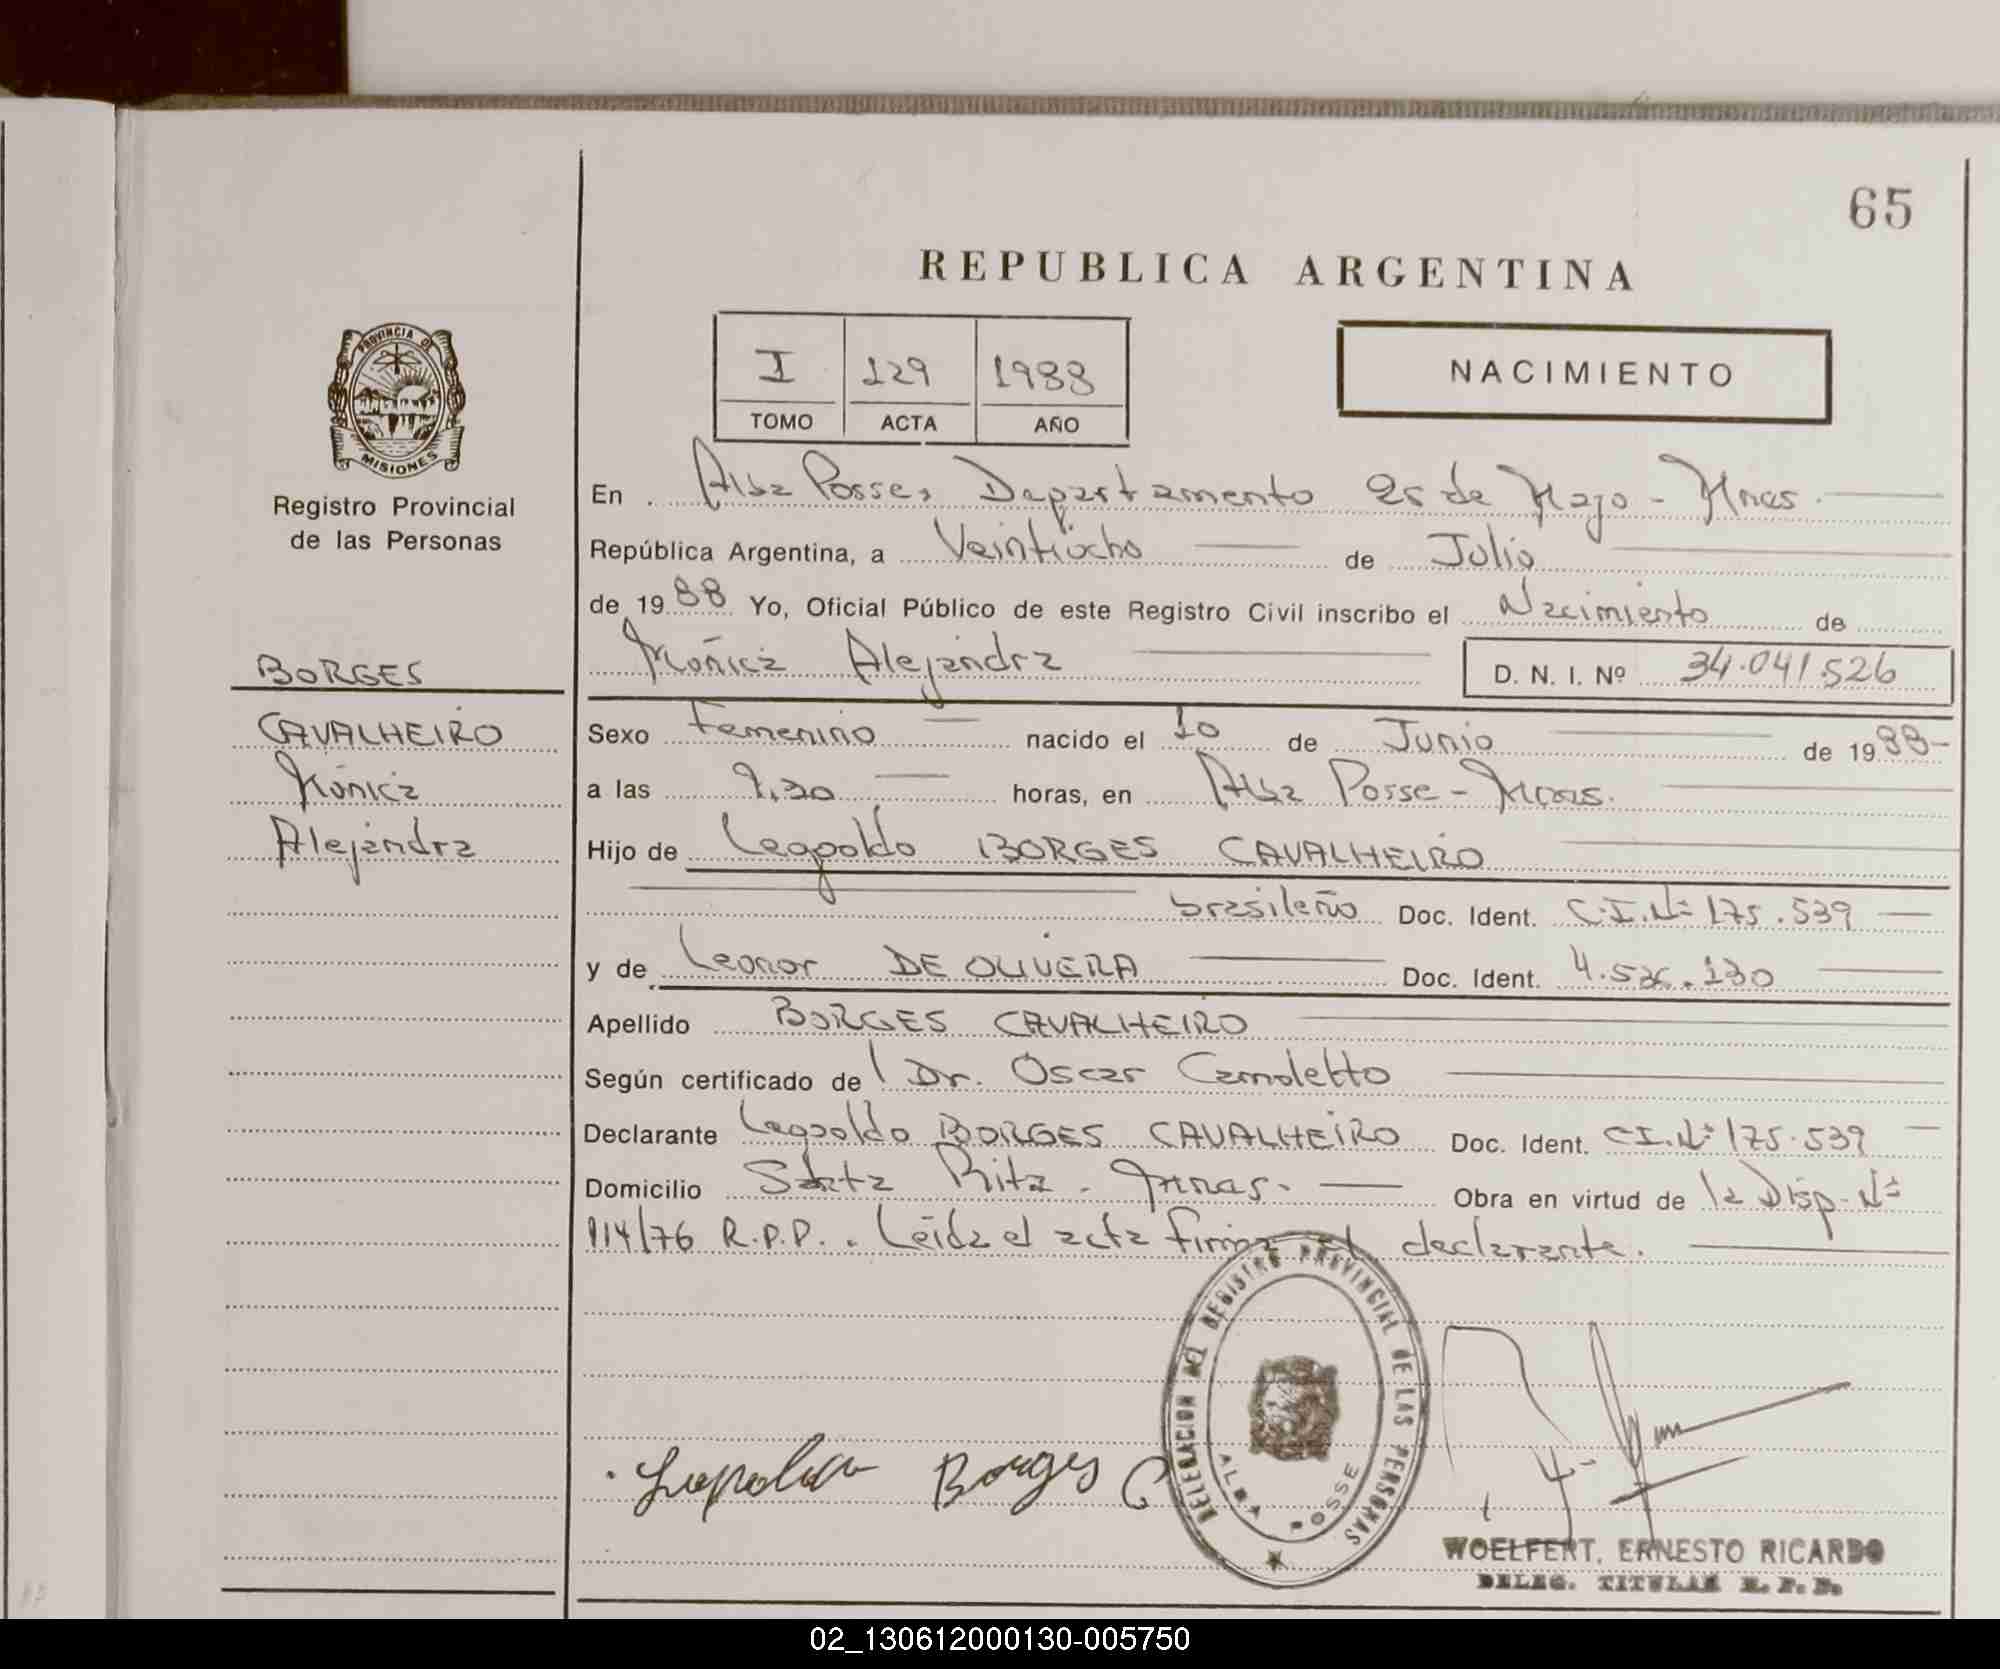 65
REPUBLICA ARGENTINA
I 129 1988
TOMO ACTA AÑO
NACIMIENTO
PROVINCIA DE
MISIONES
Registro Provincial
de las Personas
BORGES
CAVALHEIRO
Mónica
Alejandra
En Alba Posse, Departamento 25 de Mayo - Mnes.
República Argentina, a Veintiocho de Julio
de 1988 Yo, Oficial Público de este Registro Civil inscribo el Nacimiento de
Mónica Alejandra D. N. I. Nº 34.041.526
Sexo Femenino nacido el 10 de Junio de 1988-
a las 9,30 horas, en Alba Posse - Mnes.
Hijo de Leopoldo BORGES CAVALHEIRO
brasileño Doc. Ident. C.I.Nº 175.539
y de Leonor DE OLIVERA Doc. Ident. 130
Apellido BORGES CAVALHEIRO
Según certificado de Dr. Oscar Camoletto
Declarante Leopoldo BORGES CAVALHEIRO Doc. Ident. C.I.Nº 175.539
Domicilio Santa Rita - Mnes. Obra en virtud de la Disp. Nº
114/76 R.P.P. . Leída el acta firma el declarante.
DELEGACION DEL REGISTRO PROVINCIAL DE LAS PERSONAS
ALBA POSSE
Leopoldo Borges C
WOELFERT, ERNESTO RICARDO
DELEG. TITULAR R. P. P.
02_130612000130-005750